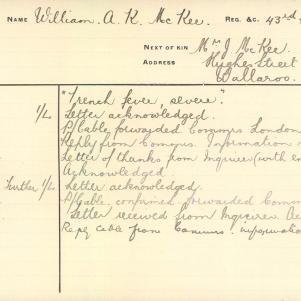 NAME William. A. K. McKee. REG. &C. 43rd
NEXT OF KIN Mr J McKee.
ADDRESS Hughes Street
Wallaroo.
"Trench fever, severe".
1/L. Letter acknowledged.
P/Cable forwarded Commrs London
Reply from Commrs. Information
Letter of thanks from Inquirer (with en
Acknowledged.
Further 1/L. Letter acknowledged.
P/Cable confirmed forwarded Comm
Letter received from Inquirer. Ac
Reply cable from Commrs. information